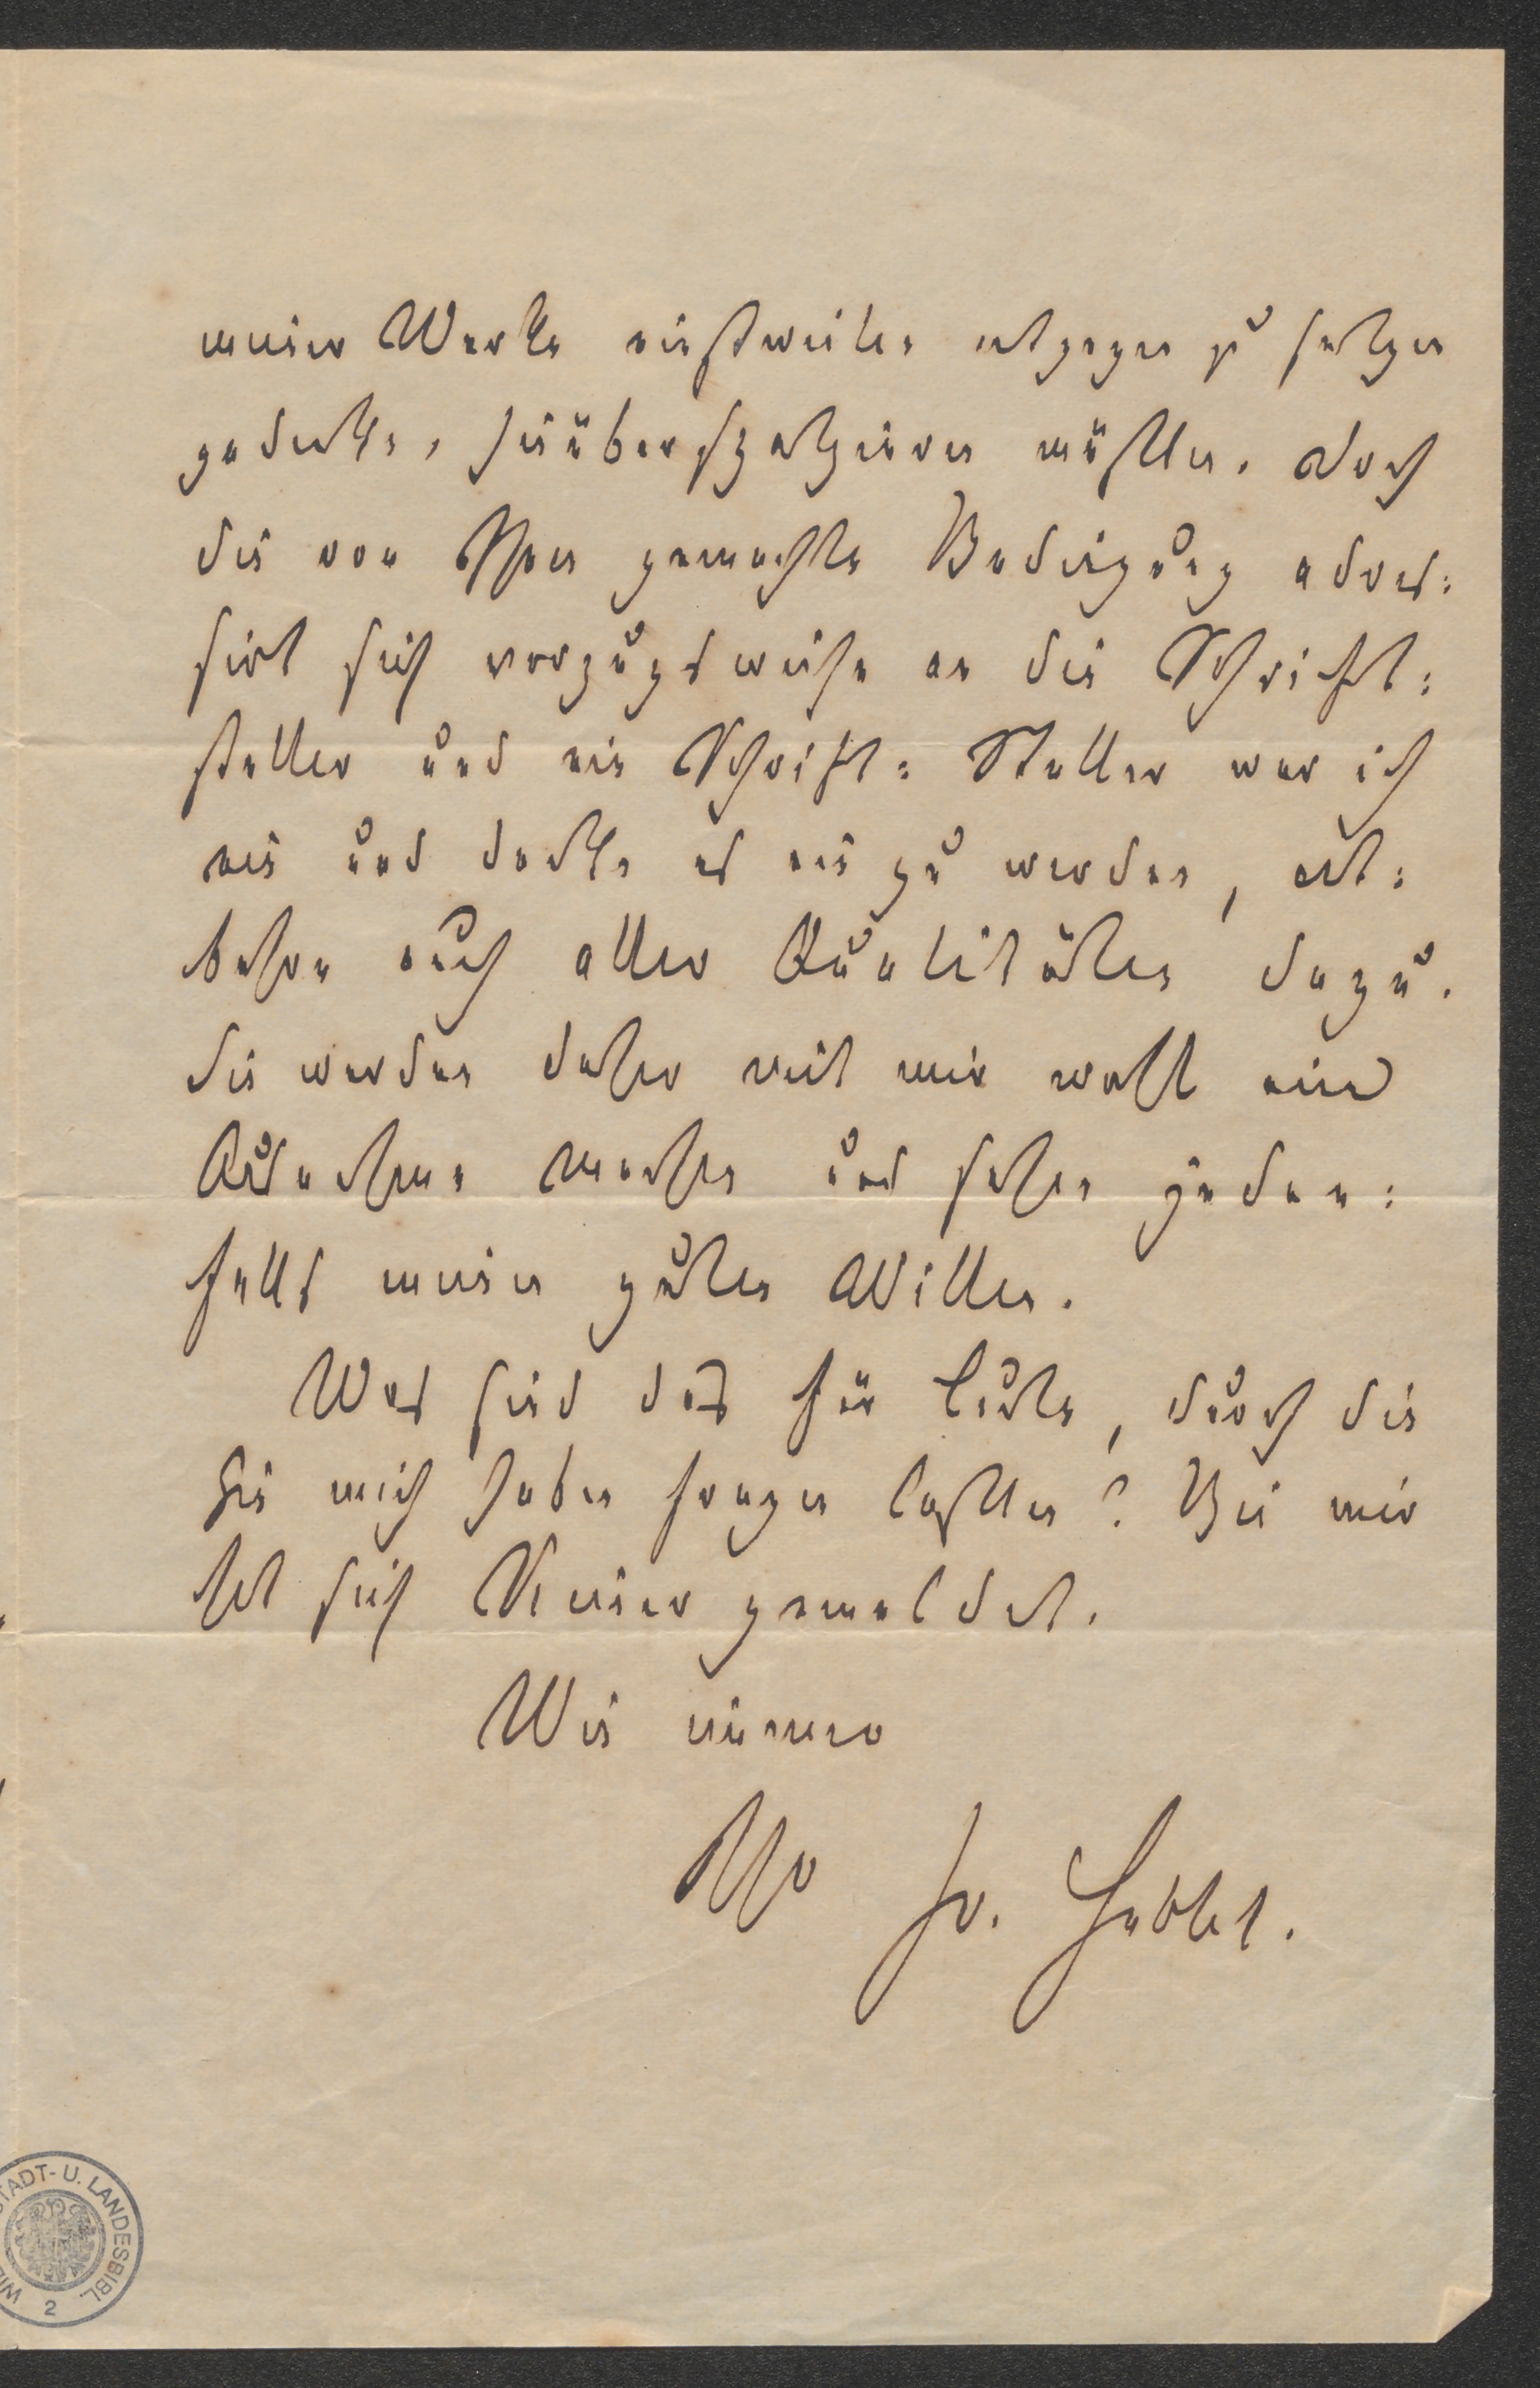 meiner Werke einstweilen entgegen zu setzen
gedenke, hinüberspatzieren müßten. Doch
die von Ihnen gemachte Bedingung adres:
sirt sich vorzugsweise an die Schrift:
steller und ein Schrift: Steller war ich
nie und denke es nie zu werden, ent:
behre auch aller Qualitäten dazu.
Sie werden daher mit mir wohl eine
Ausnahme machen und sehen jeden:
falls meinen guten Willen.
Was sind das für Leute, durch die
Sie mich haben fragen lassen? Bei mir
hat sich Keiner gemeldet.
Wie immer
Ihr Fr. Hebbel.
STADT- U. LANDESBIBL.
2